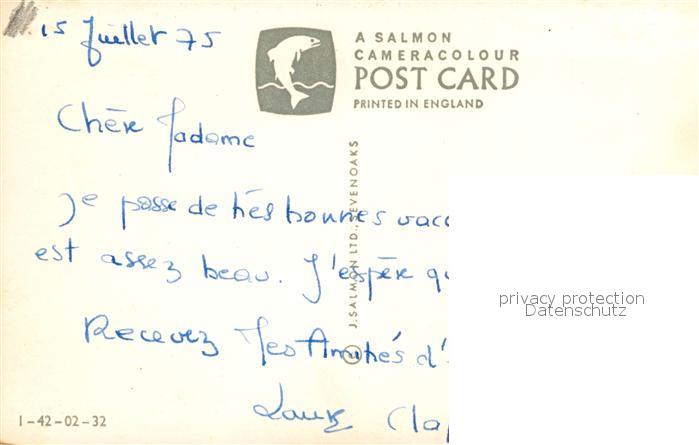 15 Juillet 75
A SALMON
CAMERACOLOUR
POST CARD
PRINTED IN ENGLAND
Chère Madame
Je passe de très bonnes vacc
est assez beau. J'espère qu
Recevez Mes Amitiés d'
Cla
J. SALMON LTD., SEVENOAKS ©
privacy protection
Datenschutz
1-42-02-32